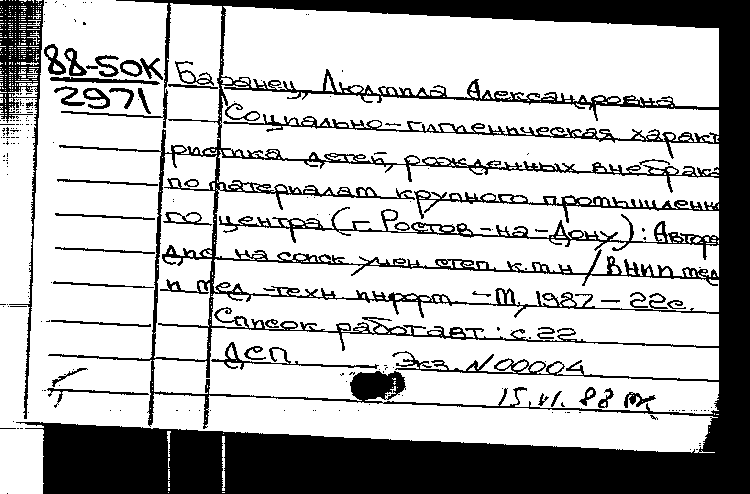 88-50К
2971
Баранец, Людмила Александровна
Социально-гигиеническая характ
ристика детей, рожденных вне брака
по материалам крупного промышленно
го центра (г. Ростов-на-Дону) : Автореф
дис. на соиск учен. степ. к.м.н / ВНИИ мед
и мед.-техн информ. - М., 1987 - 22с.
Список работ авт.: с. 22.
ДСП. Экз. N 00004
15.VI.88